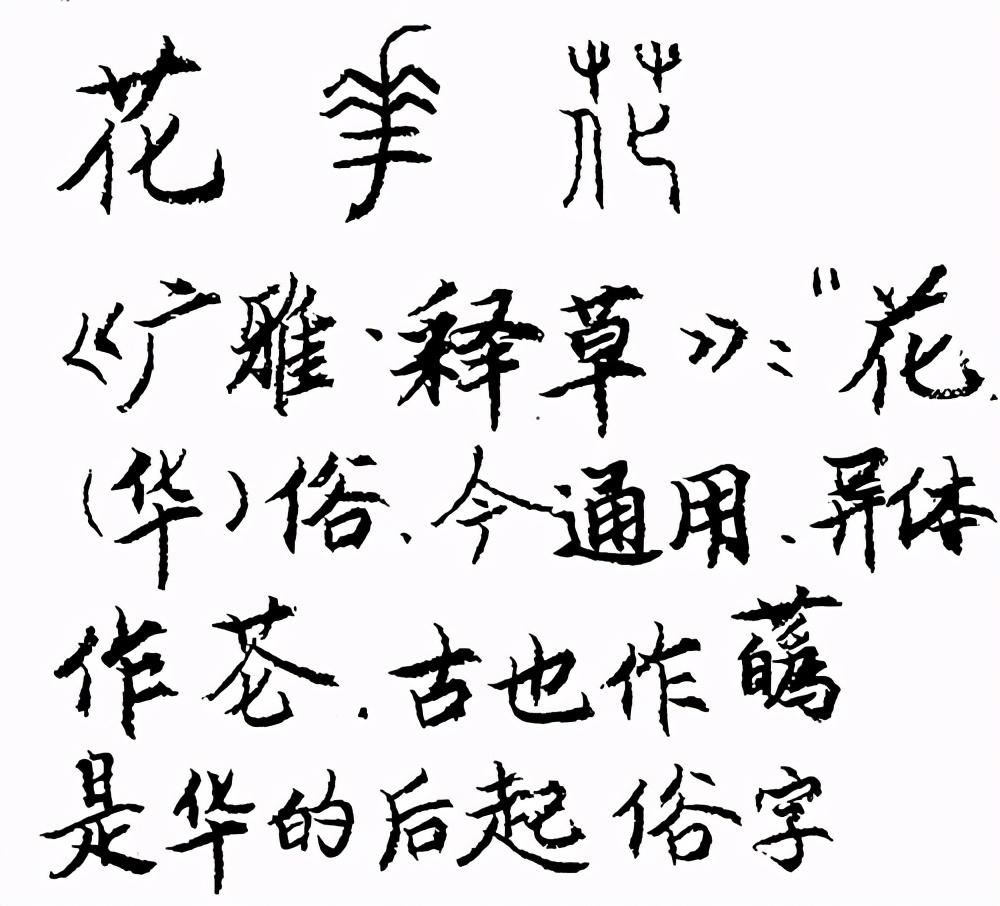 花 花
《广雅·释草》："花.
(华)俗.今通用.异体
作芲.古也作蘤
是华的后起俗字